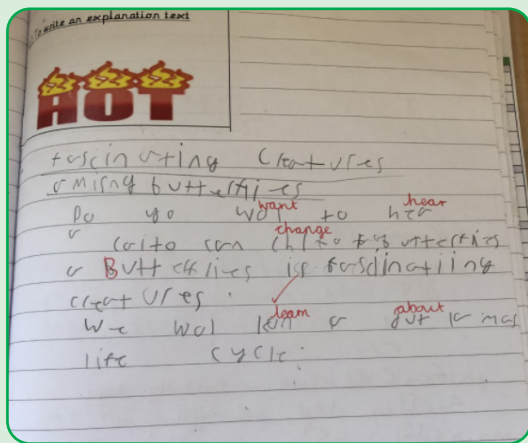 To write an explanation text
HOT
fascinating Creatures
amisng butterflies
Do yo want to hear
a can change to butterflies
a Butterflies is fasdinatiing
creatures.
We learn a about
life cycle.